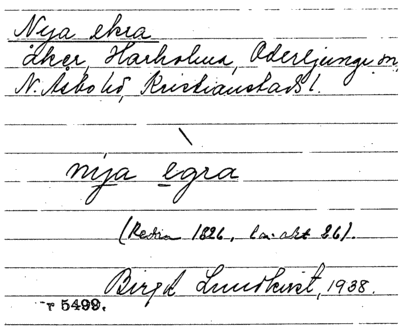 Nya ekra
åker, Harholma, Oderljunga sn,
N. Åsbo hd, Kristianstads l.
nya egra
(Redin 1826, la: akt 26).
Birgit Lundkvist, 1938.
r 5499.